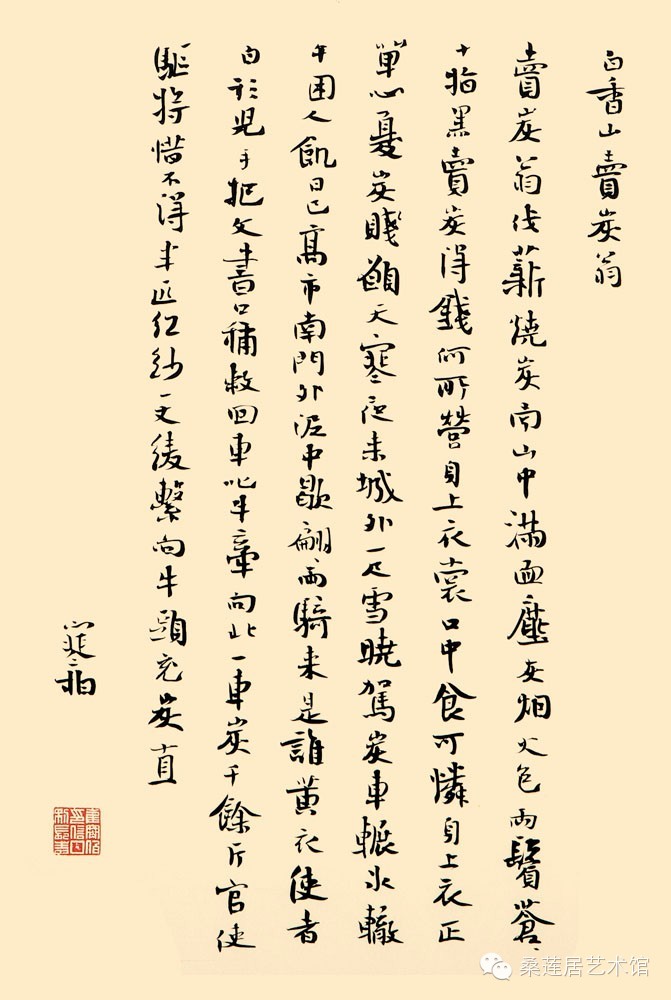 白香山賣炭翁
賣炭翁伐薪燒炭南山中滿面塵灰烟火色兩鬢蒼〻
十指黑賣炭得錢何所營身上衣裳口中食可憐身上衣正
單心憂炭賤願天寒夜來城外一尺雪曉駕炭車輾冰轍
牛困人飢日已高市南門外泥中歇翩〻兩騎來是誰黃衣使者
白衫兒手把文書口稱敕回車叱牛牽向北一車炭千餘斤官使
驅將惜不得半匹紅紗一丈綾繫向牛頭充炭直
桑莲居艺术馆